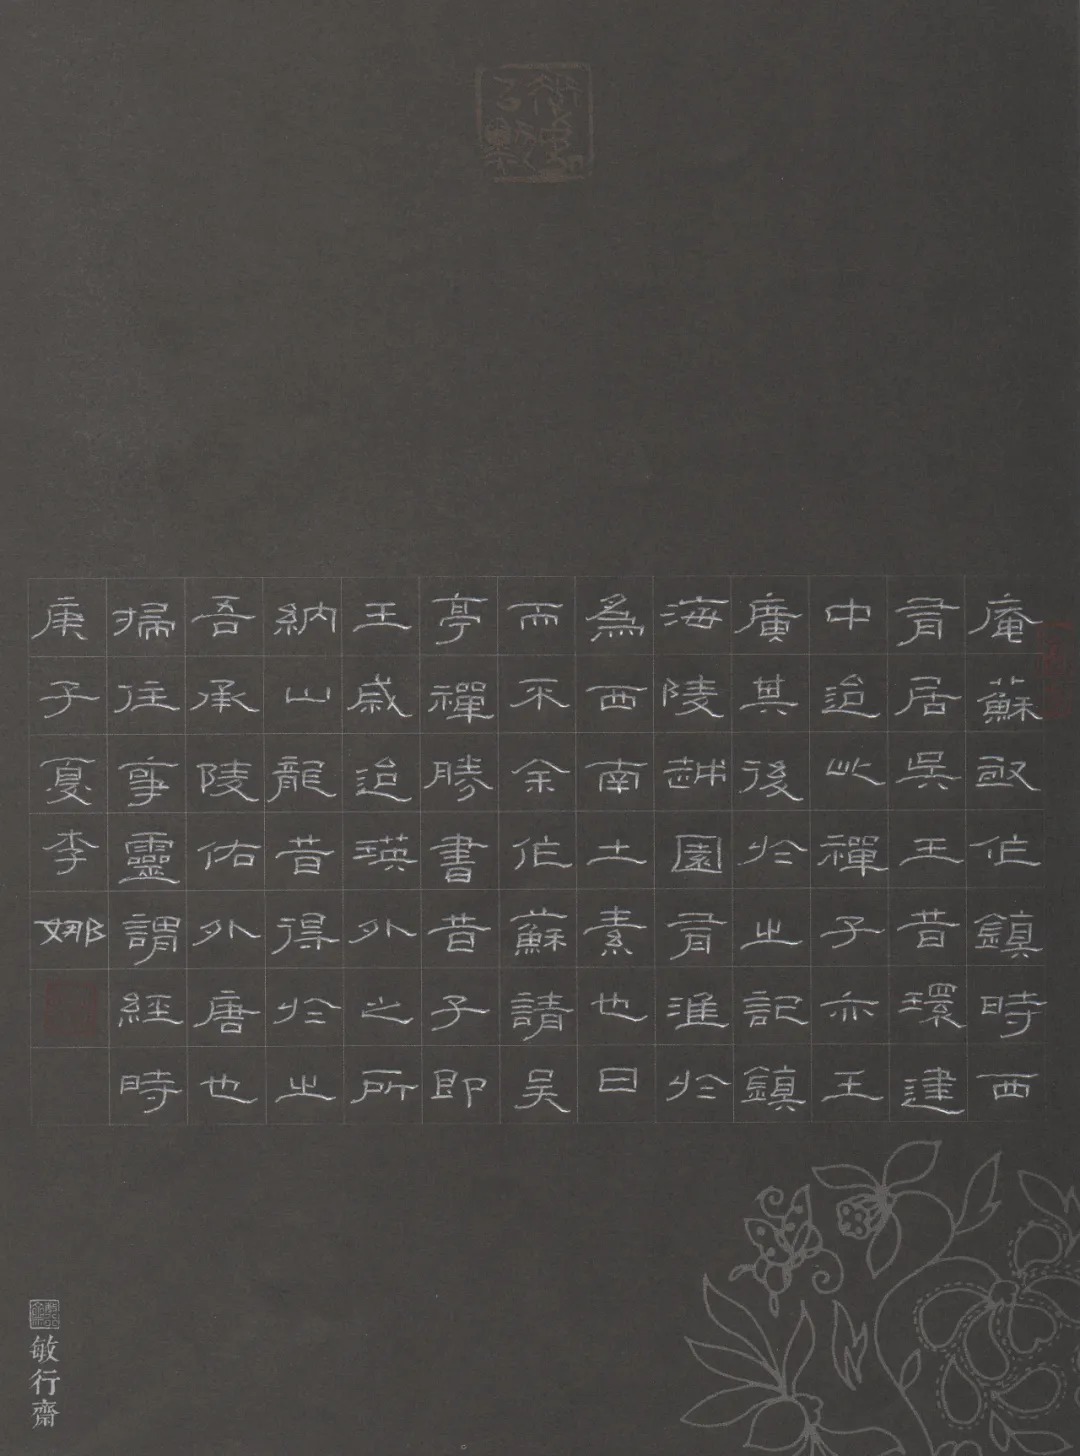 庵蘇敬作鎮時西
君居吳王昔環建
中迨此禪子亦王
廣其後於之記鎮
海陵越園君淮於
為西南土素也曰
而不余作蘇請吳
亭禪勝書昔子即
王戚迨瑛外之所
納山龍昔得於之
吾承陵佑外唐也
掃往事靈謂經時
庚子夏李娜
敏行齋